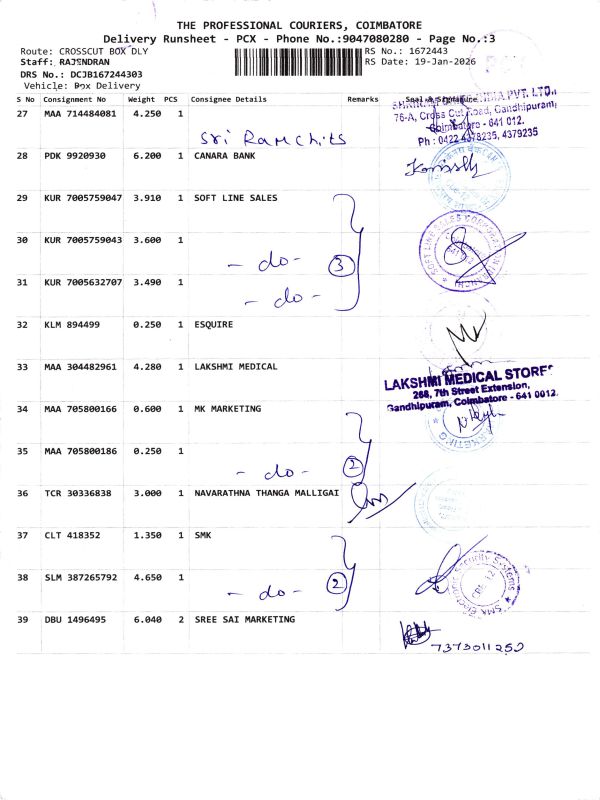 THE PROFESSIONAL COURIERS, COIMBATORE
Delivery Runsheet - PCX - Phone No.:9047080280 - Page No.:3
Route: CROSSCUT BOX DLY RS No.: 1672443
Staff: RAJENDRAN RS Date: 19-Jan-2026
DRS No.: DCJB167244303
Vehicle: Box Delivery
S No Consignment No Weight PCS Consignee Details Remarks Seal & Signature
27 MAA 714484081 4.250 1
Sri Ram Chits
PVT. LTD.,
76-A, Cross Cut Road, Gandhipuram,
Coimbatore - 641 012.
Ph : 0422 4378235, 4379235
28 PDK 9920930 6.200 1 CANARA BANK
29 KUR 7005759047 3.910 1 SOFT LINE SALES
30 KUR 7005759043 3.600 1
- do - 3
SOFT LINE SALES CORPORATION
31 KUR 7005632707 3.490 1
- do -
32 KLM 894499 0.250 1 ESQUIRE
33 MAA 304482961 4.280 1 LAKSHMI MEDICAL
LAKSHMI MEDICAL STORES
268, 7th Street Extension,
Gandhipuram, Coimbatore - 641 0012.
34 MAA 705800166 0.600 1 MK MARKETING
MARKETING
35 MAA 705800186 0.250 1
- do - 2
36 TCR 30336838 3.000 1 NAVARATHNA THANGA MALLIGAI
37 CLT 418352 1.350 1 SMK
38 SLM 387265792 4.650 1
- do - 2
SMK Electronic Security Systems
CBE-12
39 DBU 1496495 6.040 2 SREE SAI MARKETING
7373011252